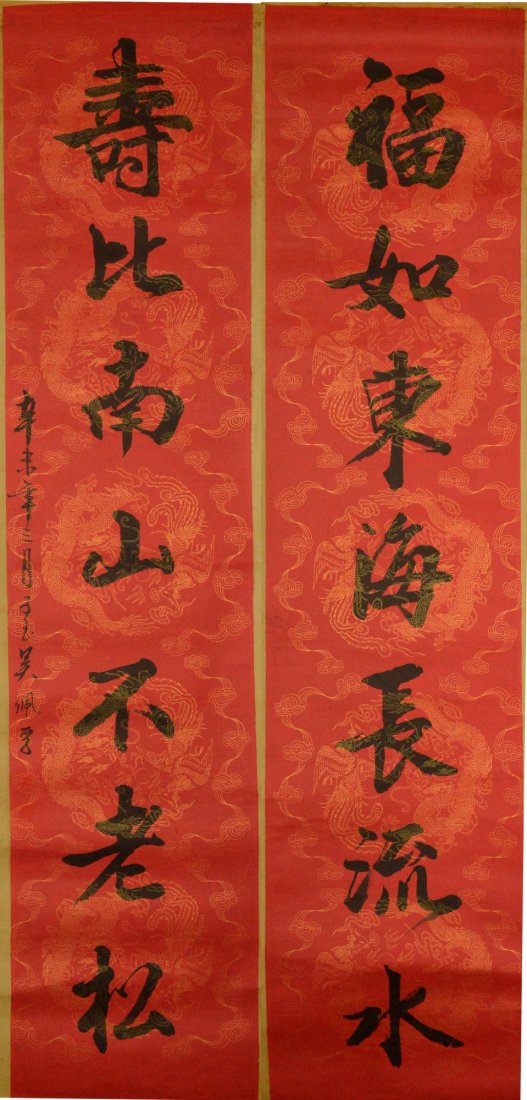 福如東海長流水
壽比南山不老松
辛未年三月
吴佩